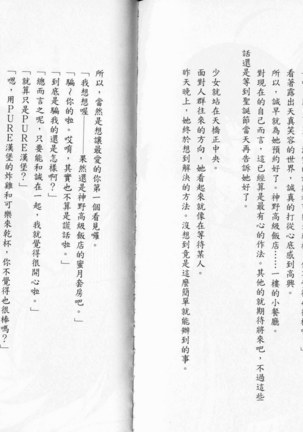 看著露出天真笑容的世界，誠真的打從心底感到高興。
所以，誠早就為她預約好了。神野高級飯店……一樓的小餐廳。
對現在的自己而言，這已經算是最有心的作法。其他的就期待將來吧，不過這些
話還是等到聖誕節當天再告訴她好了。
少女就站在天橋正中央。
面對人群往來的方向，她看起來就像在等待某人。
昨天晚上，她終於想到解決的方法。沒想到竟是這麼簡單就能辦到的事。
所以，當然是想讓最愛的你第一個看見囉。
「我想想喔——果然還是神野高級飯店的蜜月套房吧。」
「騙～你的啦。哎唷，其實也不算是謊話啦。」
「到底是騙我的還是怎樣啊？」
「總而言之呢，只要能和誠在一起，我就覺得很開心啦。」
「就算只是PURE漢堡？」
「嗯，用PURE漢堡的炸雞和可樂來乾杯，你不覺得也很棒嗎？」